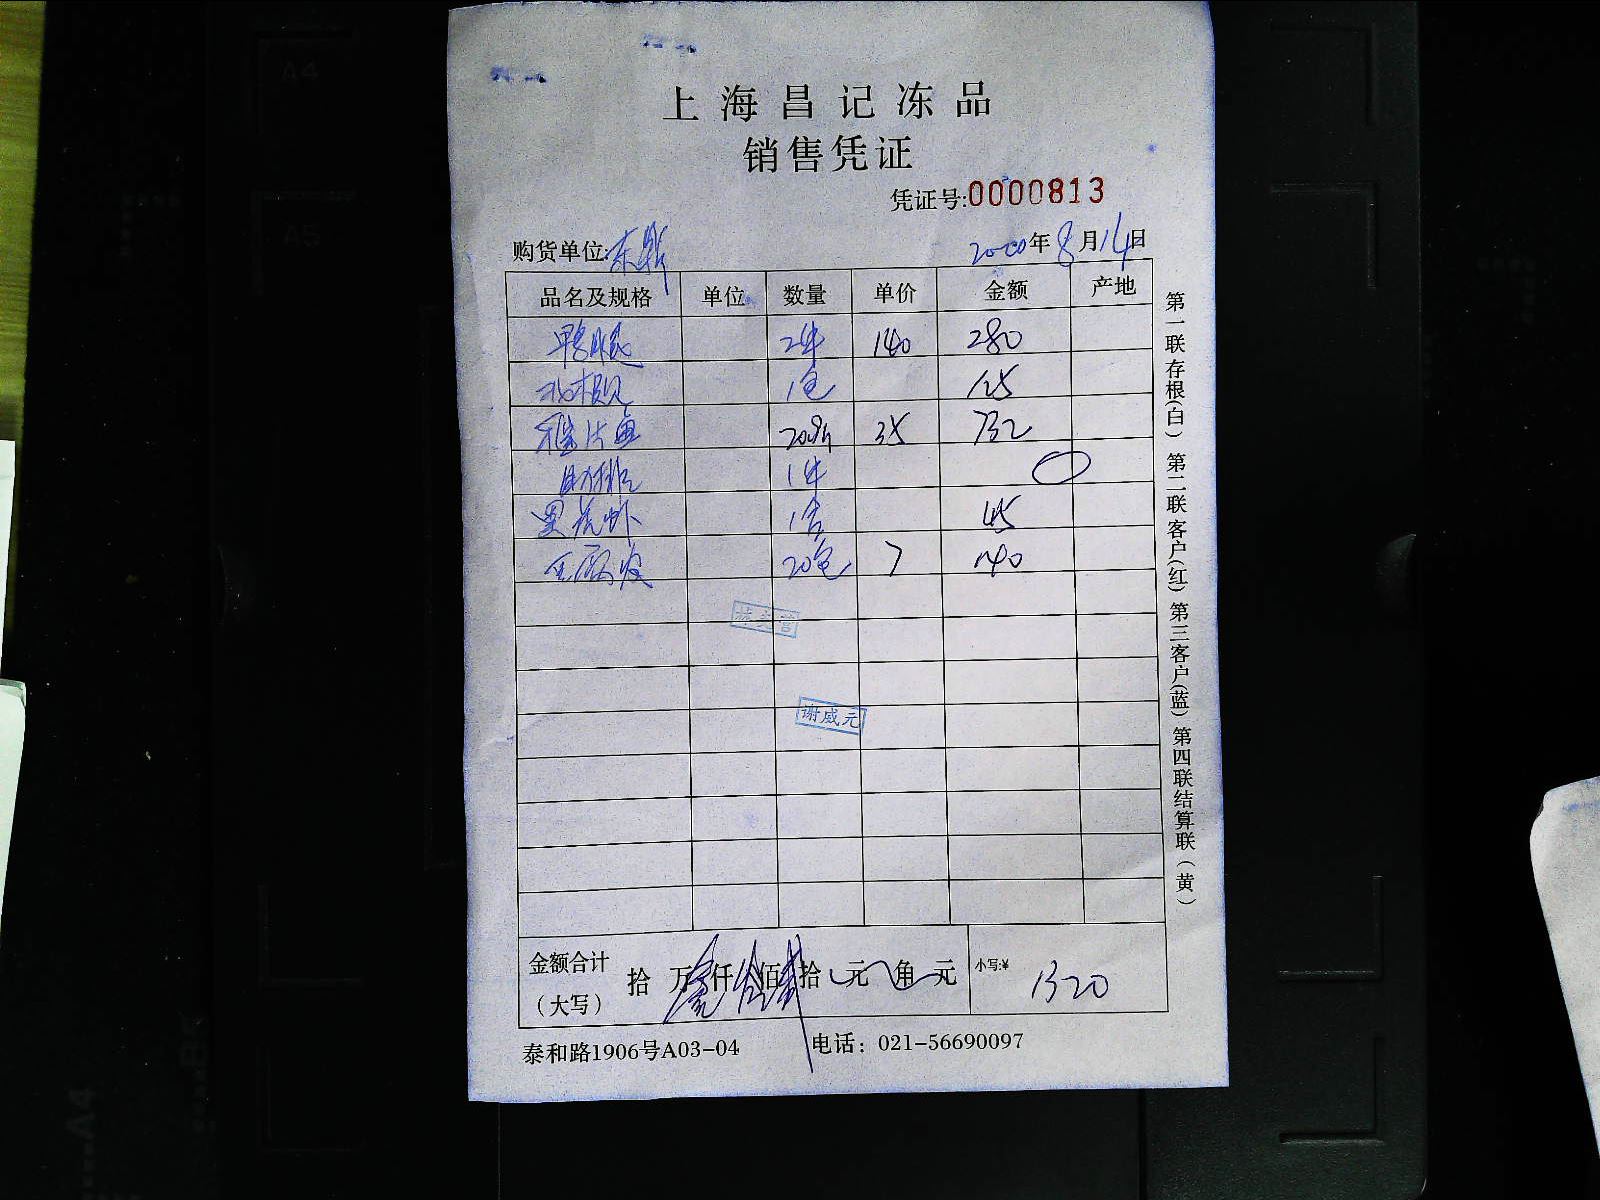 上海昌记冻品
销售凭证
凭证号:0000813
购货单位:东
2020年8月14日
品名及规格 单位 数量 单价 金额 产地
鸭腿 2件 140 280
1包 125
雅片鱼 20.9斤 35 732
肋排 1件
黑虎虾 1合 45
20包 7 140
谢威元
金额合计 拾万仟佰拾元角元 小写:¥ 1320
(大写)
泰和路1906号A03-04 电话：021-56690097
第一联存根(白) 第二联客户(红) 第三客户(蓝) 第四联结算联(黄)